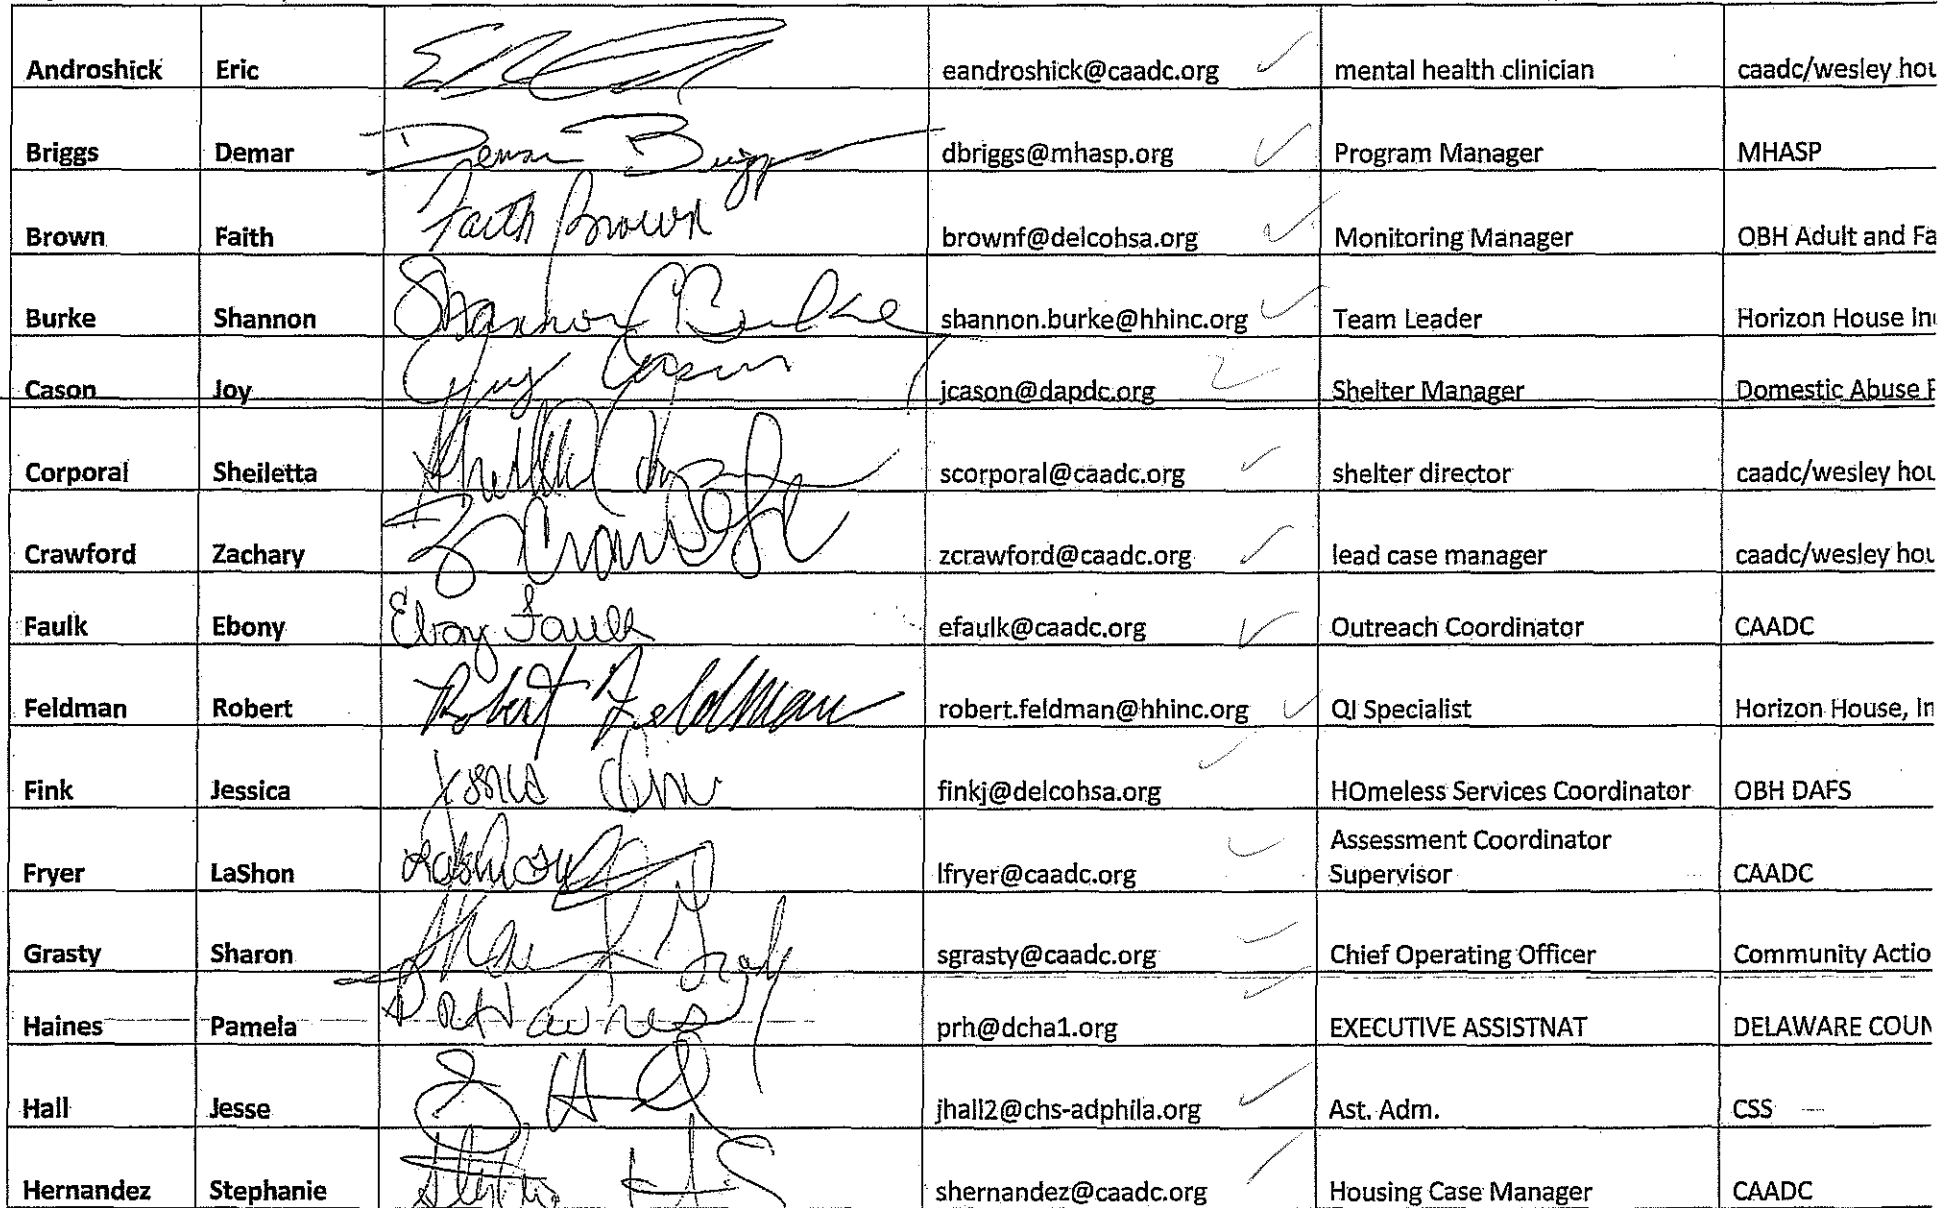 Androshick Eric eandroshick@caadc.org mental health clinician caadc/wesley hou
Briggs Demar Demar Briggs dbriggs@mhasp.org Program Manager MHASP
Brown Faith Faith Brown brownf@delcohsa.org Monitoring Manager OBH Adult and Fa
Burke Shannon Shannon Burke shannon.burke@hhinc.org Team Leader Horizon House In
Cason Joy Joy Cason jcason@dapdc.org Shelter Manager Domestic Abuse P
Corporal Sheiletta scorporal@caadc.org shelter director caadc/wesley hou
Crawford Zachary Z Crawford zcrawford@caadc.org lead case manager caadc/wesley hou
Faulk Ebony Ebony Faulk efaulk@caadc.org Outreach Coordinator CAADC
Feldman Robert Robert Feldman robert.feldman@hhinc.org QI Specialist Horizon House, In
Fink Jessica finkj@delcohsa.org HOmeless Services Coordinator OBH DAFS
Fryer LaShon lfryer@caadc.org Assessment Coordinator
Supervisor CAADC
Grasty Sharon sgrasty@caadc.org Chief Operating Officer Community Actio
Haines Pamela P R Haines prh@dcha1.org EXECUTIVE ASSISTNAT DELAWARE COUN
Hall Jesse jhall2@chs-adphila.org Ast. Adm. CSS
Hernandez Stephanie shernandez@caadc.org Housing Case Manager CAADC